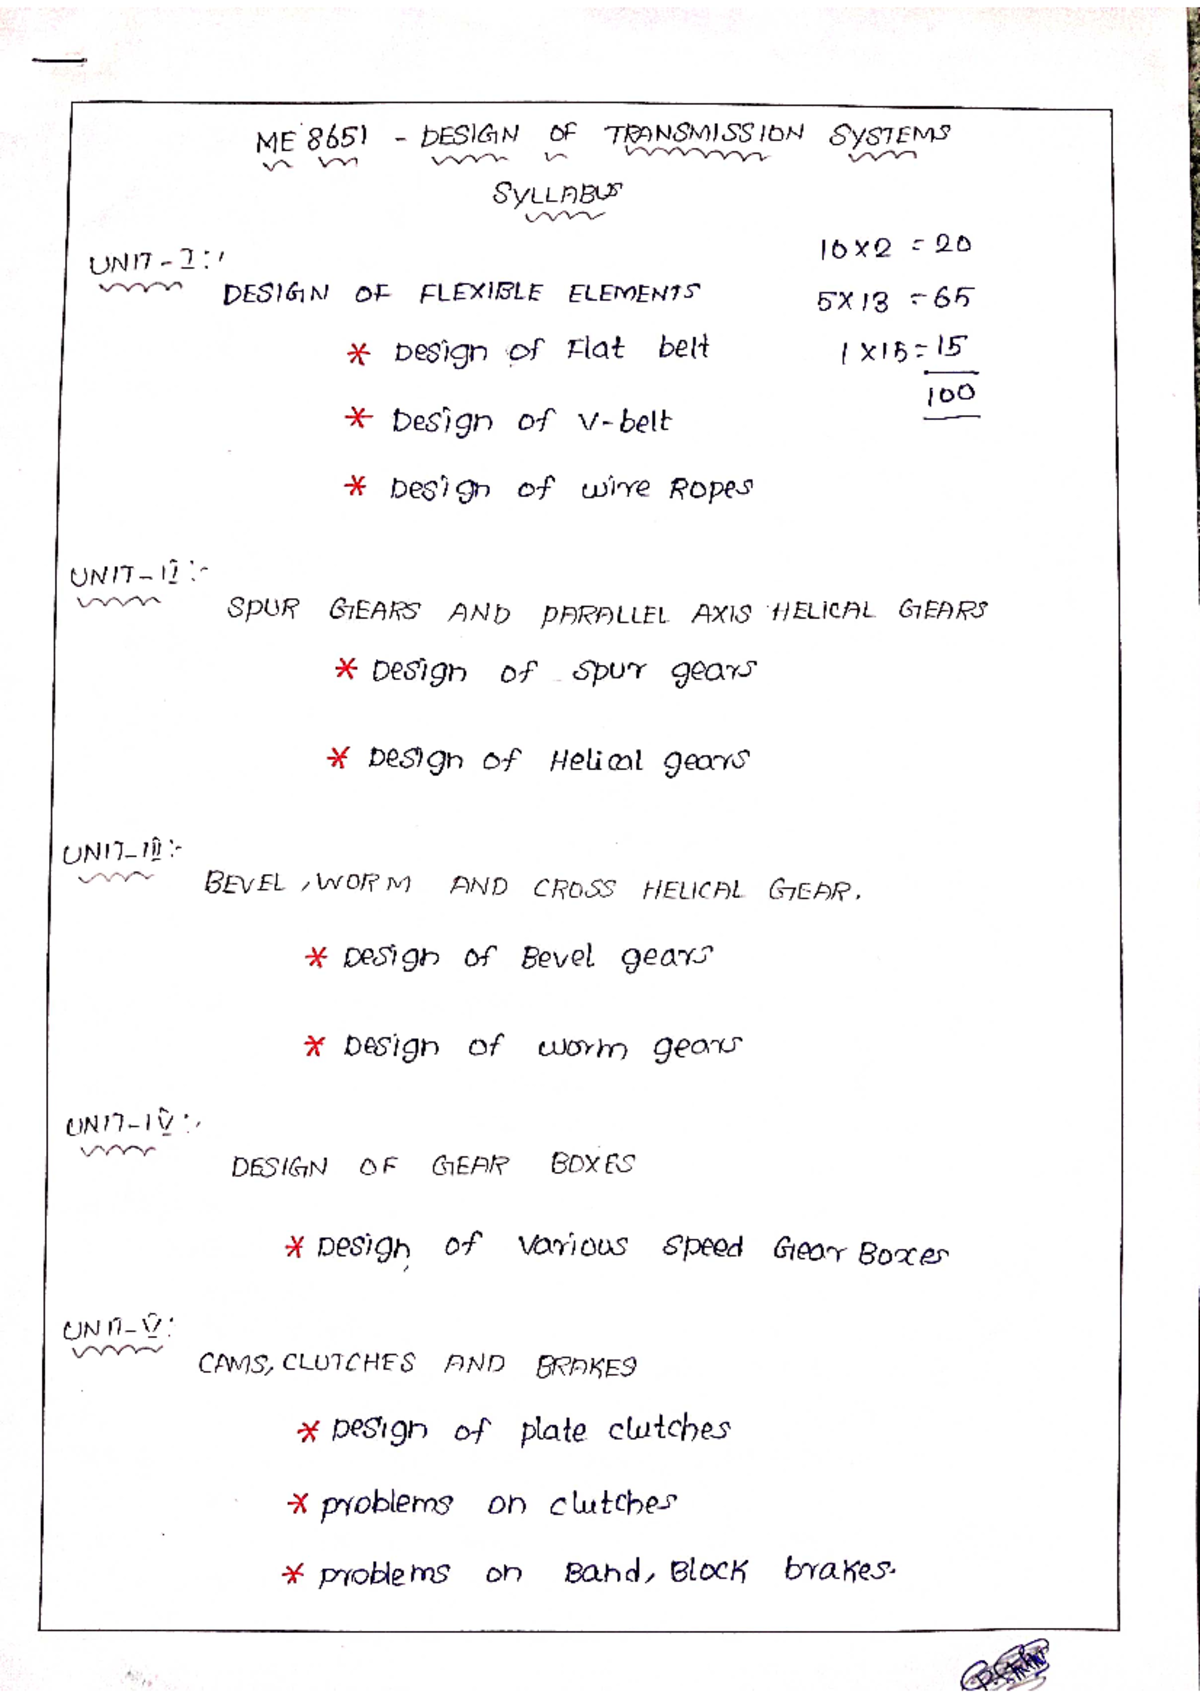 ME 8651 - DESIGN OF TRANSMISSION SYSTEMS
SYLLABUS
UNIT - I :-
10 X 2 = 20
5 X 13 = 65
1 X 15 = 15
100
DESIGN OF FLEXIBLE ELEMENTS
* Design of Flat belt
* Design of V-belt
* Design of wire Ropes
UNIT - II :-
SPUR GEARS AND PARALLEL AXIS HELICAL GEARS
* Design of spur gears
* Design of Helical gears
UNIT - III :-
BEVEL, WORM AND CROSS HELICAL GEAR.
* Design of Bevel gears
* Design of worm gears
UNIT - IV :-
DESIGN OF GEAR BOXES
* Design of various speed Gear Boxes
UNIT - V :
CAMS, CLUTCHES AND BRAKES
* Design of plate clutches
* problems on clutches
* problems on Band, Block brakes.